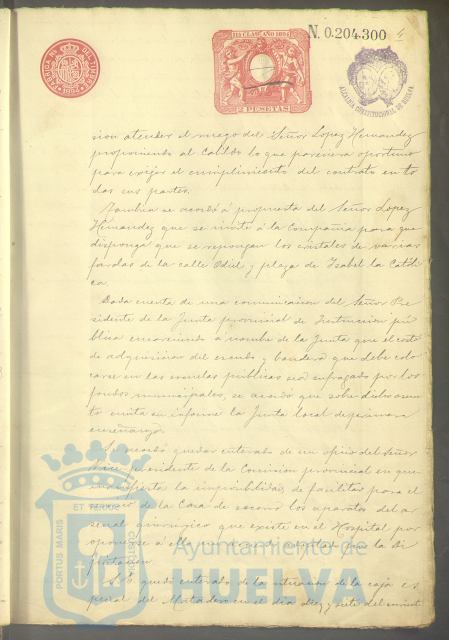 11ª CLASE AÑO 1894
N. 0.204.300
4
FÁBRICA NL. DEL TIMBRE
1894
2 PESETAS
ALCALDIA CONSTITUCIONAL DE HUELVA
sion atender el ruego del Señor Lopez Hernandez
proponiendo al Cabildo lo que pareciera oportuno
para exijir el cumplimiento del contrato en to
das sus partes.
Tambien se acordó á propuesta del Señor Lopez
Hernandez que se invite á la Compañia para que
disponga que se repongan los cristales de varias
farolas de la calle Odiel y plaza de Isabel la Católi
ca.
Dada cuenta de una comunicacion del Señor Pre
sidente de la Junta provincial de Instruccion pú
blica encareciendo á nombre de la Junta que el costo
de adquisicion del escudo y bandera que debe colo
carse en las escuelas públicas sea sufragado por los
fondos municipales, se acordó que sobre dicho asun
to emita su informe la Junta local de primera
enseñanza.
Se acordó quedar enterado de un oficio del Señor
Vice-presidente de la Comision provincial en que
manifiesta la imposibilidad de facilitar para el
servicio de la Casa de socorro los aparatos del ar
senal quirurgico que existe en el Hospital por
oponerse á ella un acuerdo adoptado por la Di
putacion.
Se quedó enterado de la situacion de la caja es
pecial del Matadero en el dia diez y siete del corrient
PORTUS MARIS
ET TERRAE
CUSTODIA
Ayuntamiento de
HUELVA